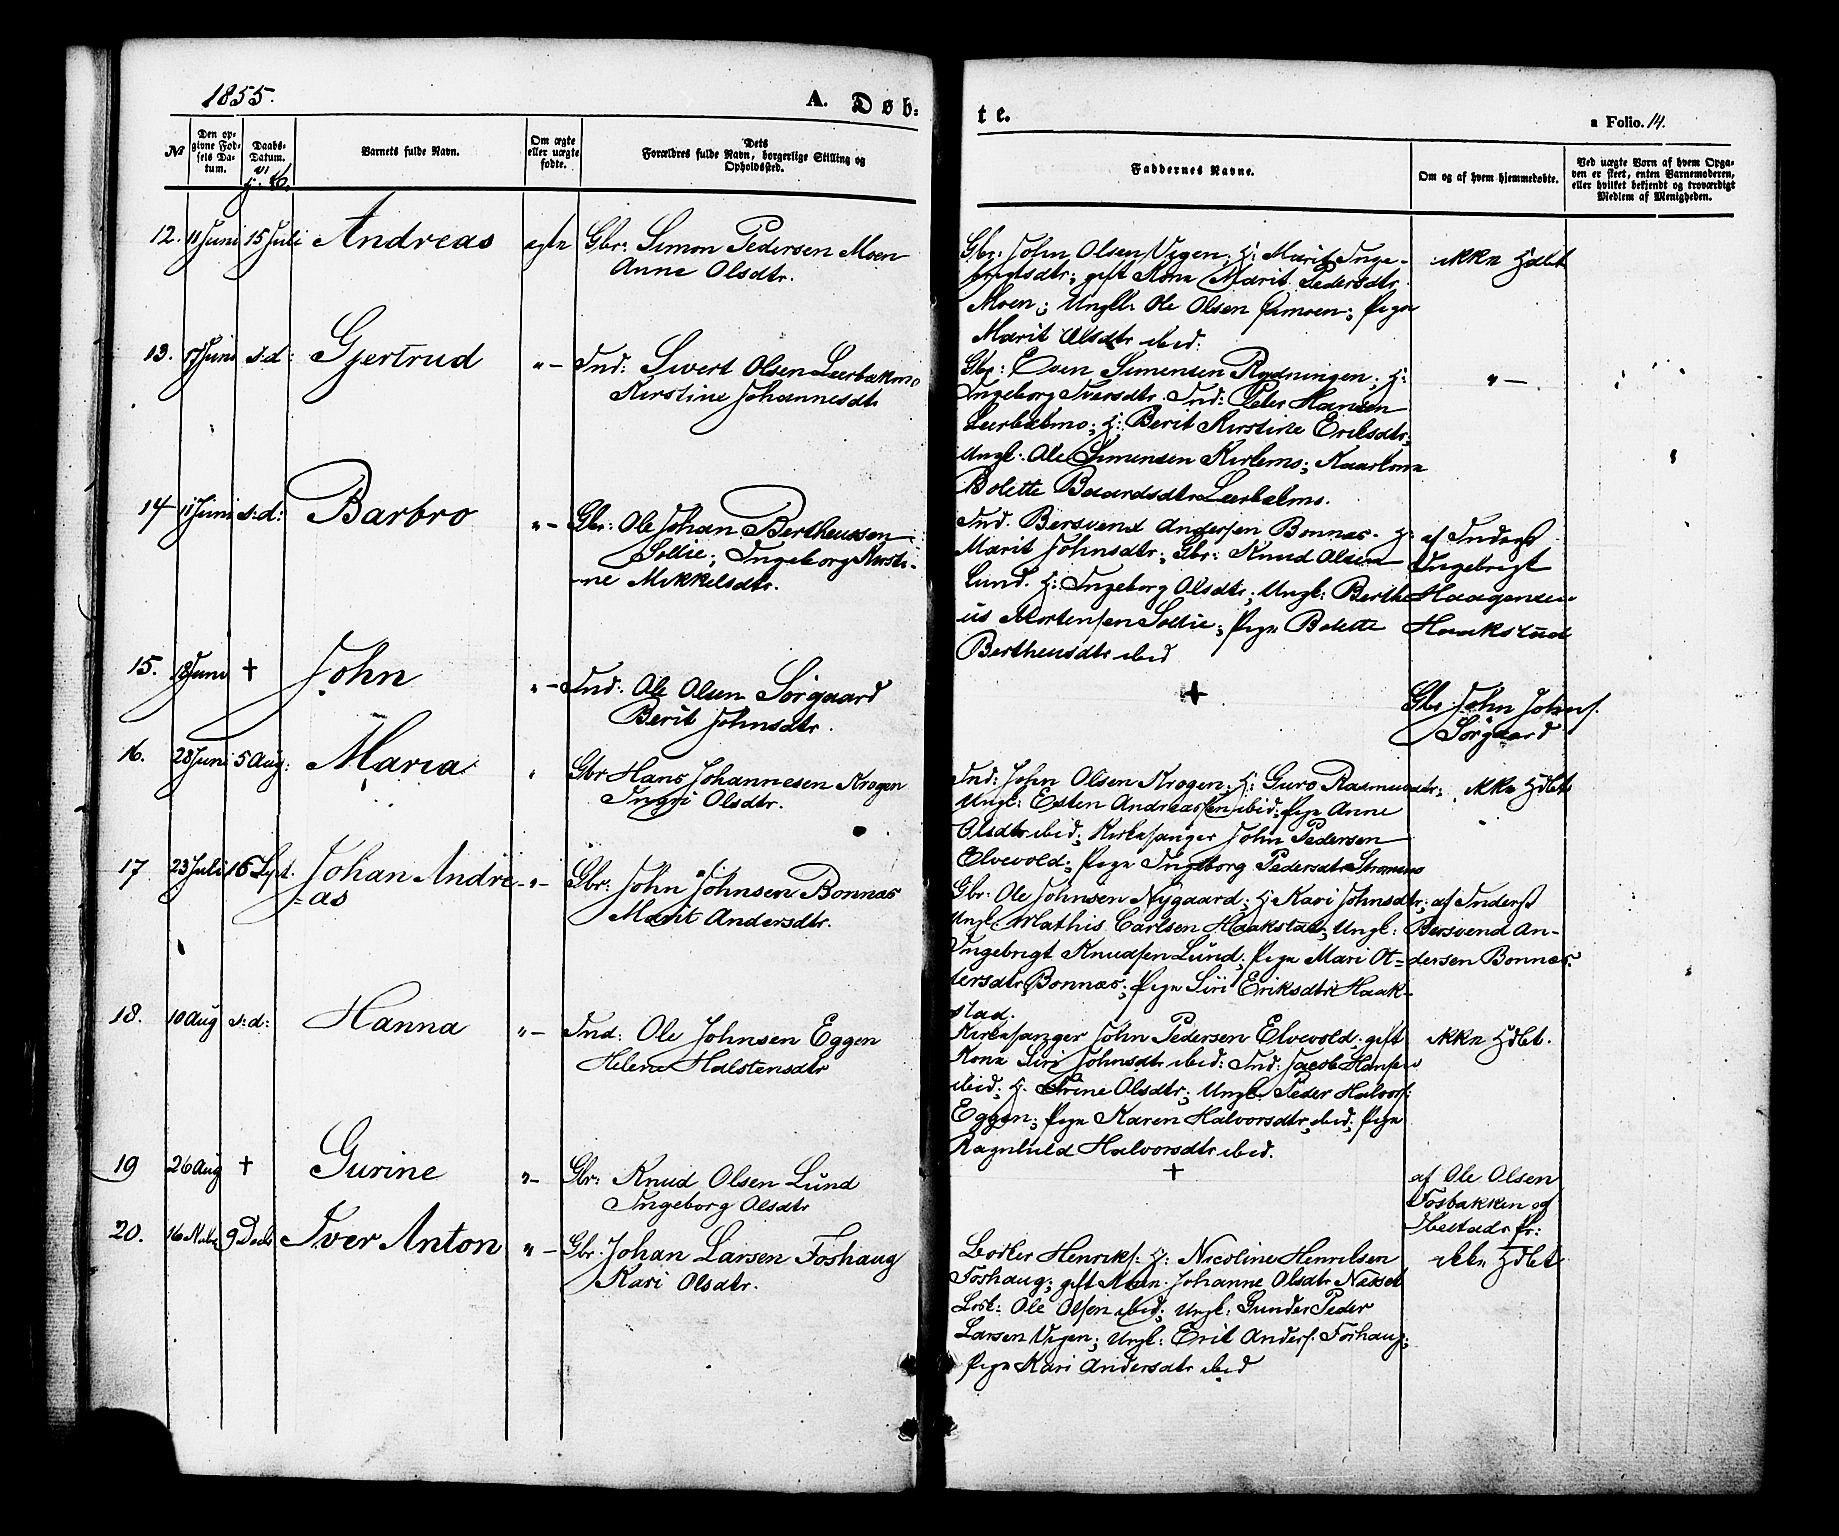 1855.
A. Døb-
te.
a Folio. 14.
№
Den op-
givne Fød-
sels Da-
tum.
Daabs-
Datum.
Barnets fulde Navn.
Om ægte
eller uægte
fødte.
Dets
Forældres fulde Navn, borgerlige Stilling og
Opholdssted.
Faddernes Navne.
Om og af hvem hjemmedøbte.
Ved uægte Børn af hvem Opga-
ven er skeet, enten Barnemoderen,
eller hvilket bekjendt og troværdigt
Medlem af Menigheden.
12. 11 Juni 15 Juli Andreas ægte Gbr: Simon Pedersen Moen
Anne Olsdtr.
Gbr. John Olsen Vigen; H: Marit Inge-
brigtsdtr; gift Kone Marit Pedersdtr
Moen; Ungk. Ole Olsen Frmoen; Pige
Marit Olsdtr ibid.
ikke Hdbt
13. 17 Juni s:d: Gjertrud "- Ind: Sivert Olsen Leerbækmo
Kirstine Johannesdtr
Gbr: Even Simensen Rydningen; H:
Ingeborg Iversdtr. Ind: Peter Hansen
Leerbækmo; H: Berit Kirstine Eriksdtr;
Ungk. Ole Simensen Kirkemo; Kaarkone
Bolette Baardsdtr Leerbækmo.
"-
14 11 Juni s:d: Barbro "- Gbr: Ole Johan Bertheussen
Sollie; Ingeborg Kirsti-
-ne Mikkelsdtr.
Ind. Bersvend Andersen Bonnes. H:
Marit Johnsdtr; Gbr: Knud Olsen
Lund. H: Ingeborg Olsdtr; Ungk: Berthe
us Mortensen Sollie; Pige Bolette
Bertheusdtr ibid
af Inderst
Ingebrigt
Haagensen
Haakstad
15. 18 Juni + John "- Ind: Ole Olsen Sørgaard
Berit Johnsdtr.
+
Gbr John Johns.
Sørgaard
16. 28 Juni 5 Aug: Maria " Gbr Hans Johannesen Krogen
Ingri Olsdtr.
Ind: John Olsen Krogen; H: Guro Rasmusdtr;
Ungk: Esten Andreassen ibid; Pige Anne
Olsdtr ibid; Kirkesanger John Pedersen
Elvevold; Pige Ingeborg Pedersdtr Strømmen
ikke Hdbt
17 23 Juli 16 Sept. Johan Andre
-as
"- Gbr: John Johnsen Bonnes
Marit Andersdtr.
Gbr: Ole Johnsen Nygaard; H: Kari Johnsdtr;
Ungk. Mathis Carlsen Haakstad; Ungk:
Ingebrigt Knudsen Lund; Pige Mari An-
dersdtr Bonnes; Pige Siri Eriksdtr Haak-
stad.
af Inderst
Bersvend An-
dersen Bonnes.
18. 10 Aug s:d: Hanna "- Ind: Ole Johnsen Eggen
Helene Halstensdtr
Kirkesanger John Pedersen Elvevold; gift
Kone Siri Johnsdtr ibid: Ind: Jacob Hansen
ibid; H. Trine Olsdtr; Ungk. Peder Halvors:
Eggen; Pige Karen Halvorsdtr ibid; Pige
Ragnhild Halvorsdtr ibid.
ikke Hdbt.
19 26 Aug + Gurine "- Gbr: Knud Olsen Lund
Ingeborg Olsdtr
+
af Ole Olsen
Fosbakken og
Ibestads Pr:
20. 16 Novbr 9 Decbr Iver Anton "- Gbr. Johan Larsen Foshaug
Kari Olsdtr.
Lods: Henriks: H: Nicoline Henriksen
Foshaug; gift Kone Johanne Olsdtr Næsset
Ole Olsen ibid; Ungk: Gunder Peder
Larsen Vigen; Ungk: Erik Anders. Foshaug;
Pige Kari Andersdtr ibid
ikke Hdbt